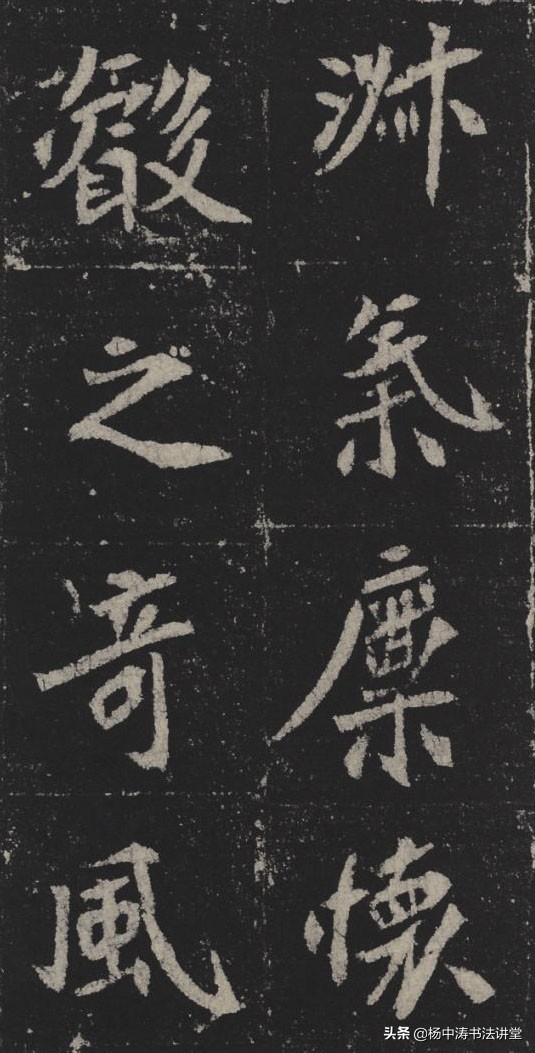 氣稟懷
叡之奇風
头条 @杨中涛书法讲堂